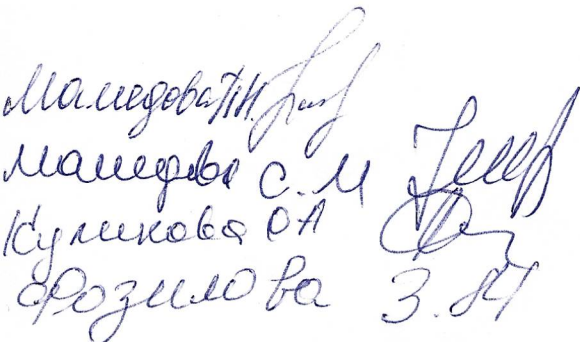 Мамедова Т.Н.
Мамедова С. М
Куликова О А
Фозилова З.